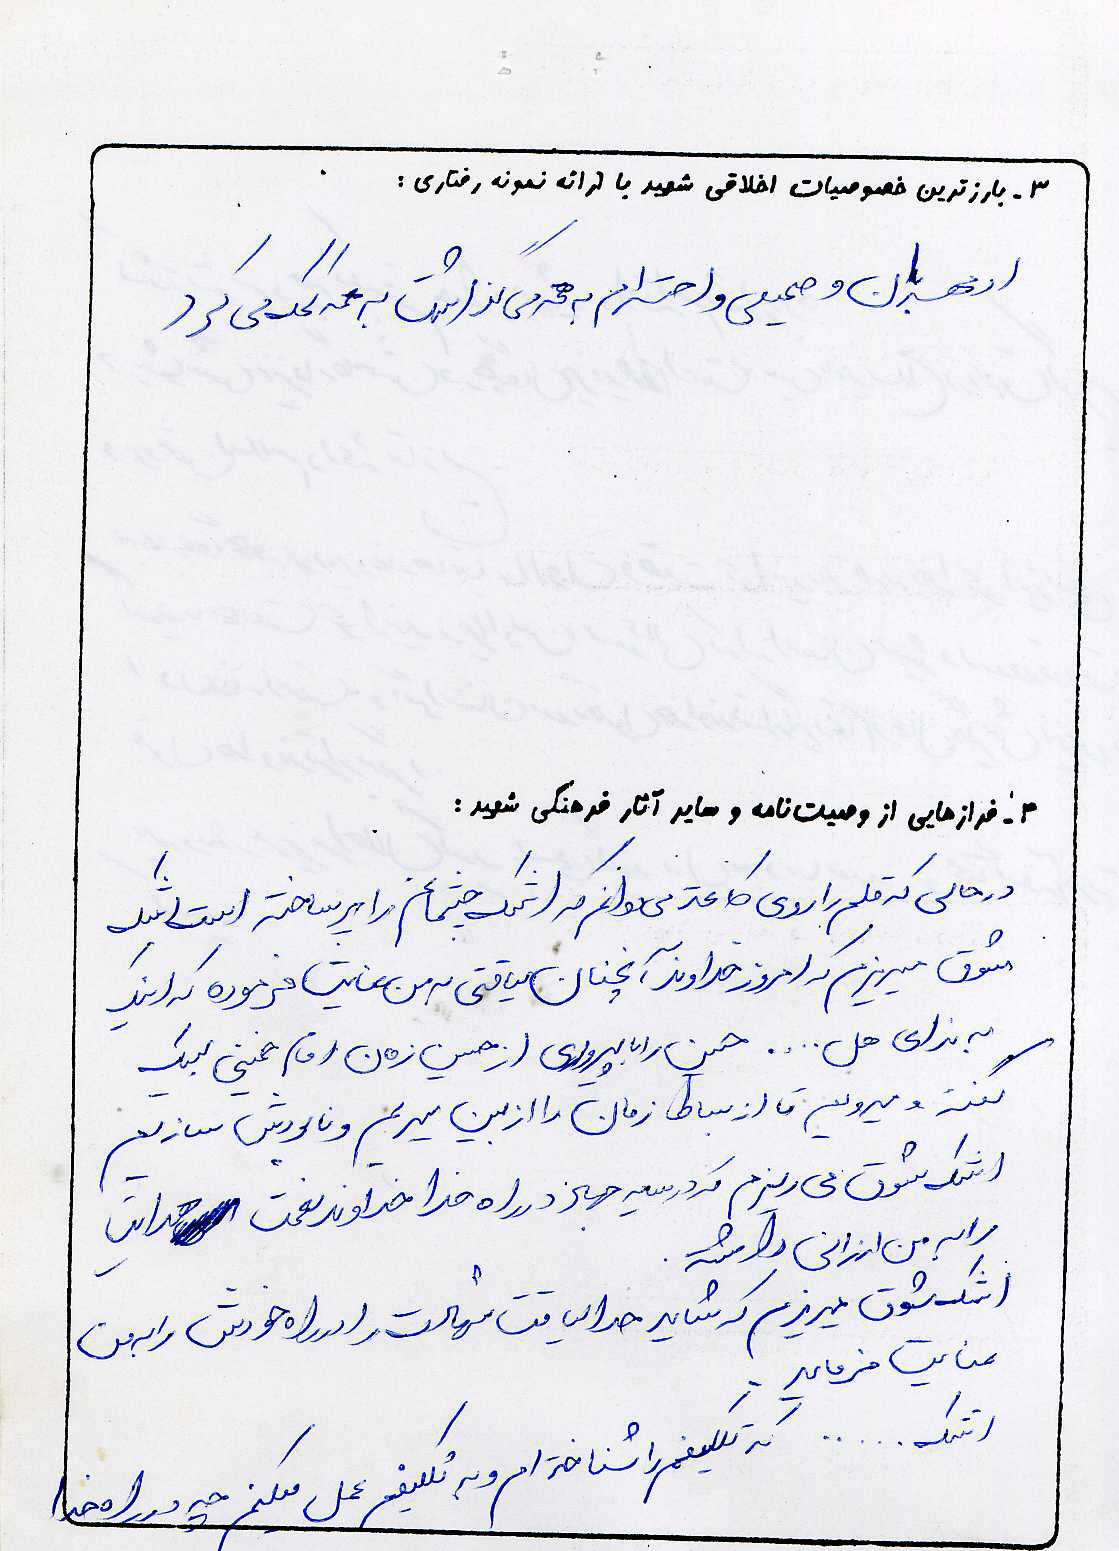 ۳- بارزترین خصوصیات اخلاقی شهید با ارائه نمونه رفتاری :
او مهربان و صمیمی و احترام به همه می گذاشت به همه کمک می کرد
۴- فرازهایی از وصیت‌نامه و سایر آثار فرهنگی شهید :
در حالی که قلم را روی کاغذ می که اشک چشمانم را پر ساخته است اشک
شوق میریزم که امروز خداوند آنچنان لیاقتی به من عنایت فرموده که اینک
به ندای هل .... حسین را با پیروی از حسین زمان امام خمینی لبیک
گفته و میرویم تا از بساط زمان را از بین ببریم و نابودش سازیم
اشک شوق می ریزم که در جهاد در راه خدا خداوند نعمت هدایت
را به من ارزانی داشته .
اشک شوق میریزم که شاید خدا لیاقت شهادت را در راه خودش را به من
عنایت فرماید
اشک ...... که تکلیفم را شناخته ام و به تکلیفم عمل میکنم چه در راه خدا